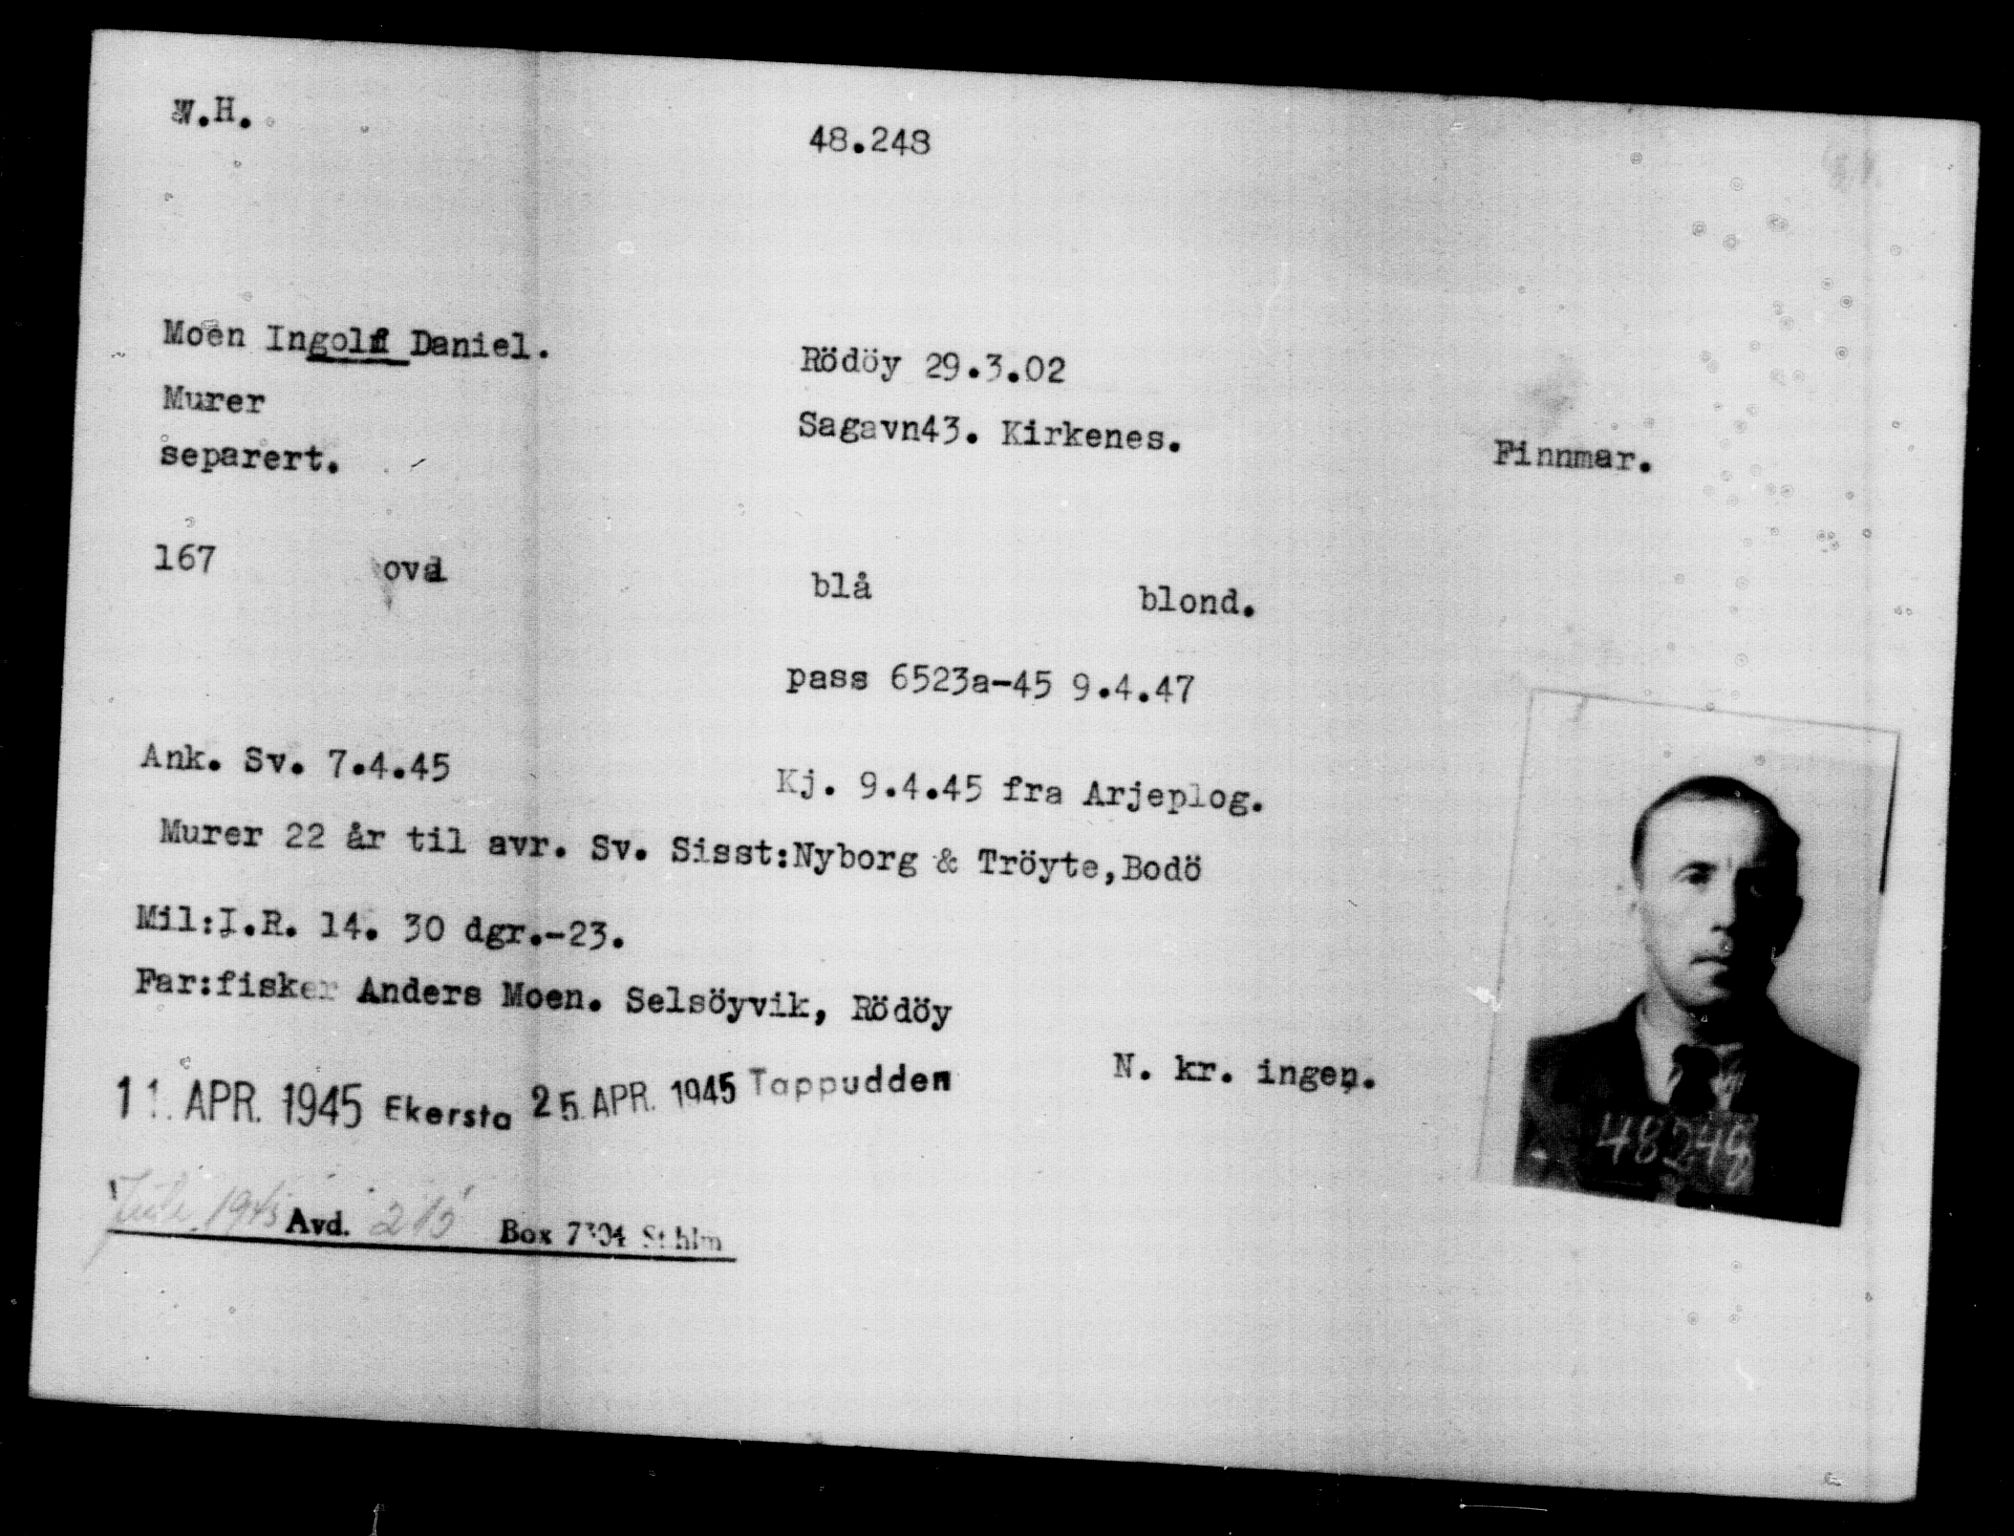 W.H.
48.248
Moen Ingolf Daniel.
Rödöy 29.3.02
Murer
Sagavn43. Kirkenes.
Finnmar.
separert.
167 oval
blå blond.
pass 6523a-45 9.4.47
Ank. Sv. 7.4.45
Kj. 9.4.45 fra Arjeplog.
Murer 22 år til avr. Sv. Sisst:Nyborg & Tröyte,Bodö
Mil:I.R. 14. 30 dgr.-23.
Far:fisker Anders Moen. Selsöyvik, Rödöy
11. APR. 1945 Ekersta 25. APR. 1945 Tappudden
N. kr. ingen.
1945 Avd. Box 7304 Sthlm
48248